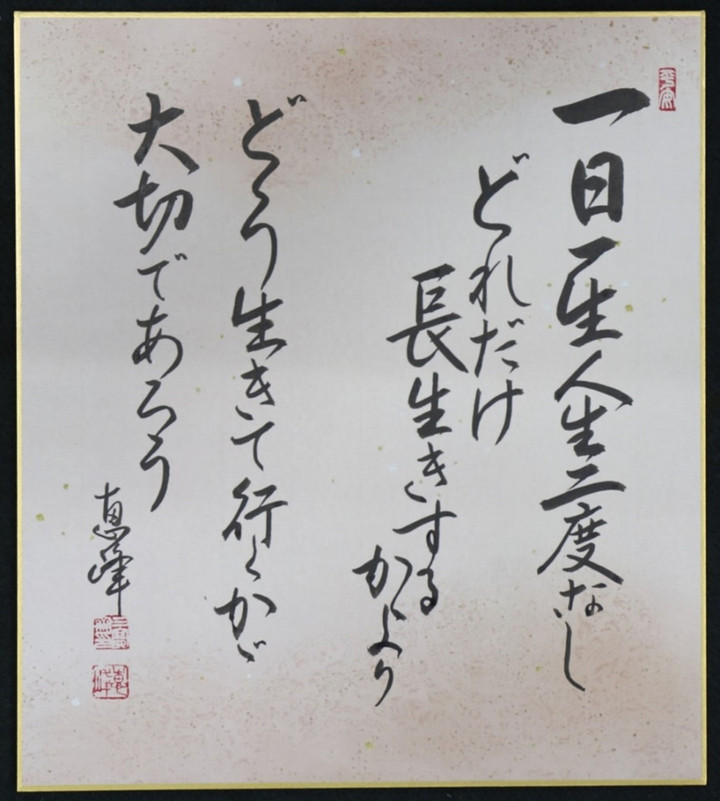 一日一生人生二度なし
どれだけ
長生きする
かより
どう生きて行くかが
大切であろう
恵峰